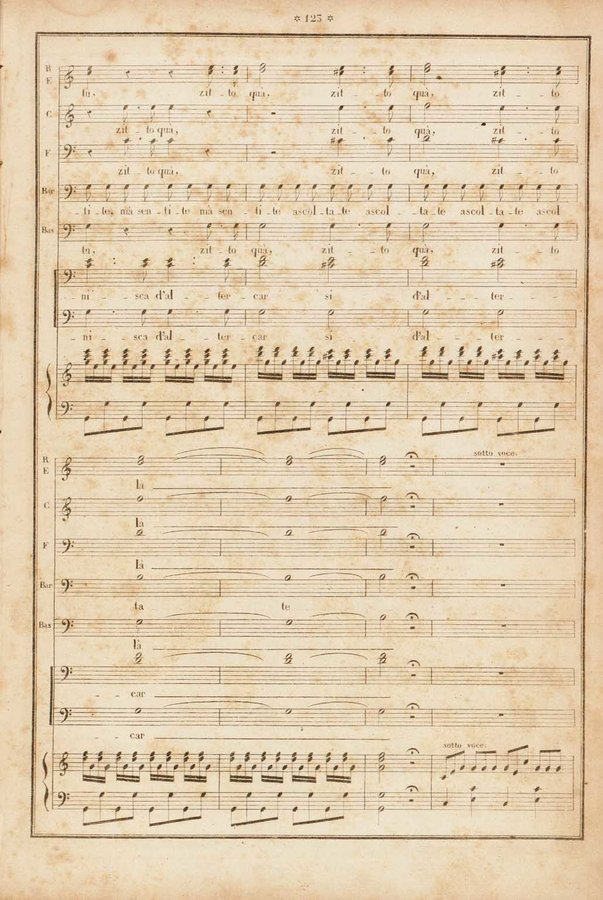 * 123 *
R
E
tu, zit - to quà, zit - to quà, zit - to
C
zit - to quà, zit - to quà, zit - to
F
zit - to quà, zit - to quà, zit - to
Bar
ti - te, mà sen - ti - te mà sen - ti - te ascol - ta - te ascol - ta - te ascol - ta - te ascol
Bas
tu, zit - to quà, zit - to quà, zit - to
ni - sca d'al - ter - car si d'al - ter -
ni - sca d'al - ter - car si d'al - ter -
R
E
sotto voce.
là
C
là
F
là
Bar
ta te
Bas
là
- - car
- - car
sotto voce.